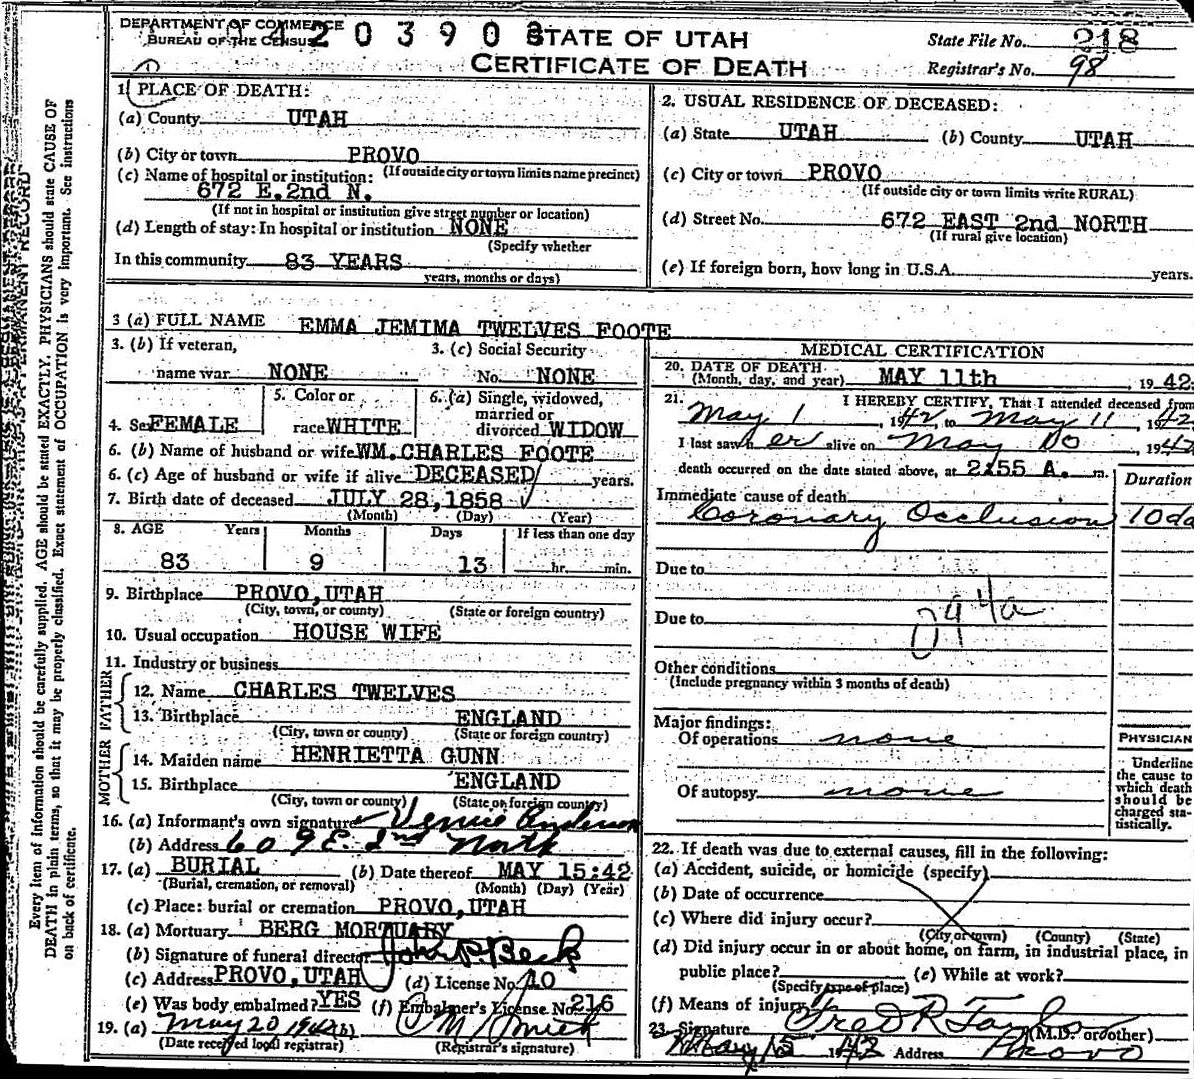 DEPARTMENT OF COMMERCE
BUREAU OF THE CENSUS
420390
STATE OF UTAH
CERTIFICATE OF DEATH
State File No. 218
Registrar's No. 98
1. PLACE OF DEATH:
(a) County UTAH
(b) City or town PROVO
(If outside city or town limits name precinct)
(c) Name of hospital or institution:
672 E.2nd N.
(If not in hospital or institution give street number or location)
(d) Length of stay: In hospital or institution NONE
(Specify whether
In this community 83 YEARS
years, months or days)
2. USUAL RESIDENCE OF DECEASED:
(a) State UTAH (b) County UTAH
(c) City or town PROVO
(If outside city or town limits write RURAL)
(d) Street No. 672 EAST 2nd NORTH
(If rural give location)
(e) If foreign born, how long in U.S.A. years.
3 (a) FULL NAME EMMA JEMIMA TWELVES FOOTE
3. (b) If veteran,
name war NONE
3. (c) Social Security
No. NONE
4. Sex FEMALE
5. Color or
race WHITE
6. (a) Single, widowed,
married or
divorced WIDOW
6. (b) Name of husband or wife WM. CHARLES FOOTE
6. (c) Age of husband or wife if alive DECEASED years.
7. Birth date of deceased JULY 28,1858
(Month) (Day) (Year)
8. AGE Years Months Days If less than one day
83 9 13 hr. min.
9. Birthplace PROVO,UTAH
(City, town, or county) (State or foreign country)
10. Usual occupation HOUSE WIFE
11. Industry or business
FATHER
12. Name CHARLES TWELVES
13. Birthplace ENGLAND
(City, town or county) (State or foreign country)
MOTHER
14. Maiden name HENRIETTA GUNN
15. Birthplace ENGLAND
(City, town or county) (State or foreign country)
16. (a) Informant's own signature Vennie Anderson
(b) Address 609 E. 2nd North
17. (a) BURIAL (b) Date thereof MAY 15:42
(Burial, cremation, or removal) (Month) (Day) (Year)
(c) Place: burial or cremation PROVO,UTAH
18. (a) Mortuary BERG MORTUARY
(b) Signature of funeral director
(c) Address PROVO,UTAH (d) License No. 10
(e) Was body embalmed? YES (f) Embalmer's License No. 216
19. (a) May 20 1942 (b)
(Date received local registrar) (Registrar's signature)
MEDICAL CERTIFICATION
20. DATE OF DEATH
(Month, day, and year) MAY 11th, 1942
21. I HEREBY CERTIFY, That I attended deceased from
May 1, 1942, to May 11, 1942
I last saw her alive on May 10, 1942
death occurred on the date stated above, at 2:55 A. m.
Duration
Immediate cause of death
Coronary Occlusion 10 da
Due to
Due to
094a
Other conditions
(Include pregnancy within 3 months of death)
Major findings:
Of operations none
Of autopsy none
PHYSICIAN
Underline
the cause to
which death
should be
charged sta-
tistically.
22. If death was due to external causes, fill in the following:
(a) Accident, suicide, or homicide (specify)
(b) Date of occurrence
(c) Where did injury occur?
(City or town) (County) (State)
(d) Did injury occur in or about home, on farm, in industrial place, in
public place? (e) While at work?
(Specify type of place)
(f) Means of injury
23. Signature Fred R Taylor (M.D. or other)
May 15 1942 Address Provo
Every item of information should be carefully supplied. AGE should be stated EXACTLY. PHYSICIANS should state CAUSE OF
DEATH in plain terms, so that it may be properly classified. Exact statement of OCCUPATION is very important. See instructions
on back of certificate.
PERMANENT RECORD